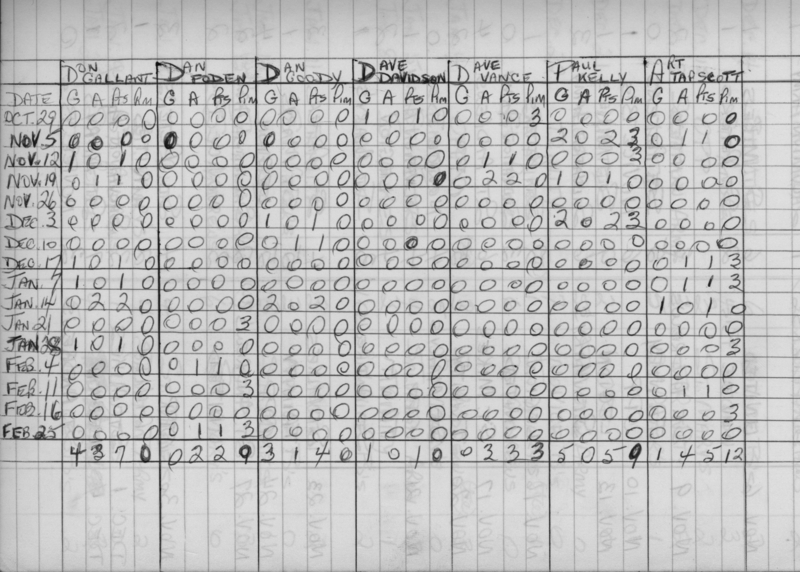 DON DAN DAN DAVE DAVE PAUL ART
GALLANT FODEN GOODY DAVIDSON VANCE KELLY TAPSCOTT
DATE G A Pts Pim G A Pts Pim G A Pts Pim G A Pts Pim G A Pts Pim G A Pts Pim G A Pts Pim
OCT. 29 0 0 0 0 0 0 0 0 0 0 0 0 1 0 1 0 0 0 0 3 0 0 0 0 0 0 0 0
NOV. 5 0 0 0 0 0 0 0 0 0 0 0 0 0 0 0 0 0 0 0 0 2 0 2 3 0 1 1 0
NOV. 12 1 0 1 0 0 0 0 0 0 0 0 0 0 0 0 0 0 1 1 0 0 0 0 3 0 0 0 0
NOV. 19 0 1 1 0 0 0 0 0 0 0 0 0 0 0 0 0 0 2 2 0 1 0 1 0 0 0 0 0
NOV. 26 0 0 0 0 0 0 0 0 0 0 0 0 0 0 0 0 0 0 0 0 0 0 0 0 0 0 0 0
DEC. 3 0 0 0 0 0 0 0 0 1 0 1 0 0 0 0 0 0 0 0 0 2 0 2 3 0 0 0 0
DEC. 10 0 0 0 0 0 0 0 0 0 1 1 0 0 0 0 0 0 0 0 0 0 0 0 0 0 0 0 0
DEC. 17 1 0 1 0 0 0 0 0 0 0 0 0 0 0 0 0 0 0 0 0 0 0 0 0 0 1 1 3
JAN. 7 1 0 1 0 0 0 0 0 0 0 0 0 0 0 0 0 0 0 0 0 0 0 0 0 0 1 1 3
JAN. 14 0 2 2 0 0 0 0 0 2 0 2 0 0 0 0 0 0 0 0 0 0 0 0 0 1 0 1 0
JAN 21 0 0 0 0 0 0 0 3 0 0 0 0 0 0 0 0 0 0 0 0 0 0 0 0 0 0 0 0
JAN 28 1 0 1 0 0 0 0 0 0 0 0 0 0 0 0 0 0 0 0 0 0 0 0 0 0 0 0 3
FEB. 4 0 0 0 0 0 1 1 0 0 0 0 0 0 0 0 0 0 0 0 0 0 0 0 0 0 0 0 0
FEB. 11 0 0 0 0 0 0 0 3 0 0 0 0 0 0 0 0 0 0 0 0 0 0 0 0 0 1 1 0
FEB. 16 0 0 0 0 0 0 0 0 0 0 0 0 0 0 0 0 0 0 0 0 0 0 0 0 0 0 0 3
FEB. 25 0 0 0 0 0 1 1 3 0 0 0 0 0 0 0 0 0 0 0 0 0 0 0 0 0 0 0 0
4 3 7 0 0 2 2 9 3 1 4 0 1 0 1 0 0 3 3 3 5 0 5 9 1 4 5 12